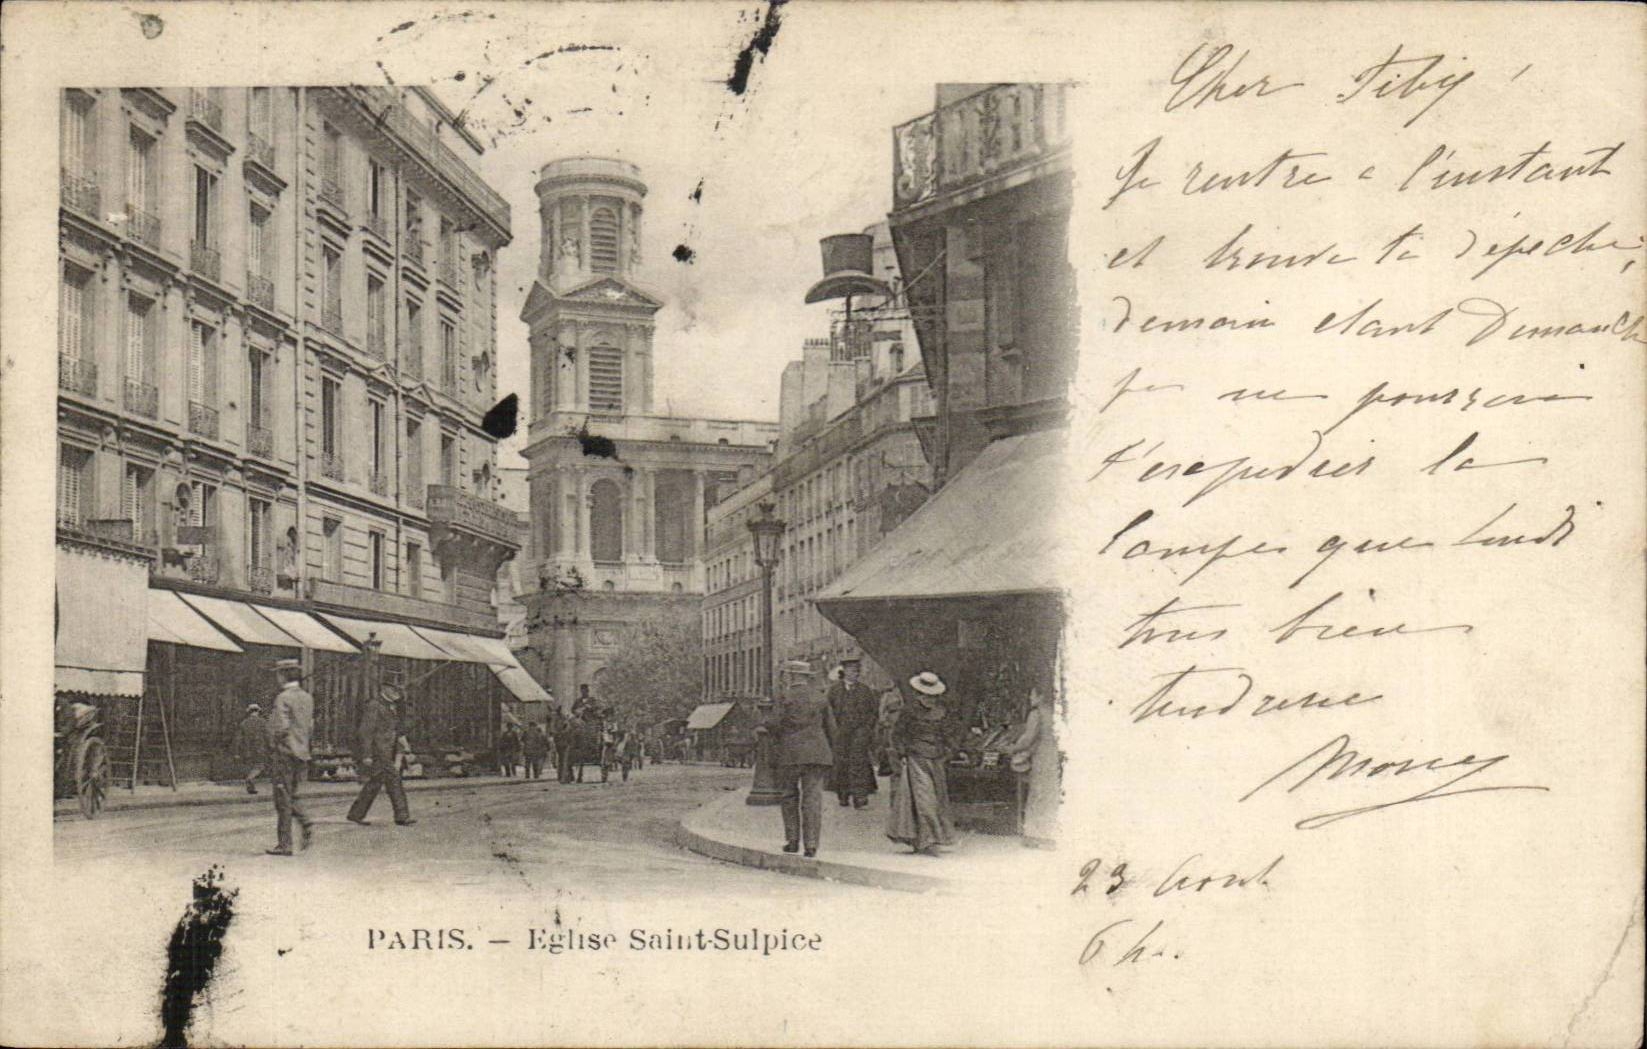 PARIS. – Eglise Saint-Sulpice
Cher
Je rentre a l'instant
et trouve ta dépêche,
demain etant Dimanche
je ne pourrai
t'expedier la
lampe que Lundi
bien
tendresse
23 Aout
6 h.